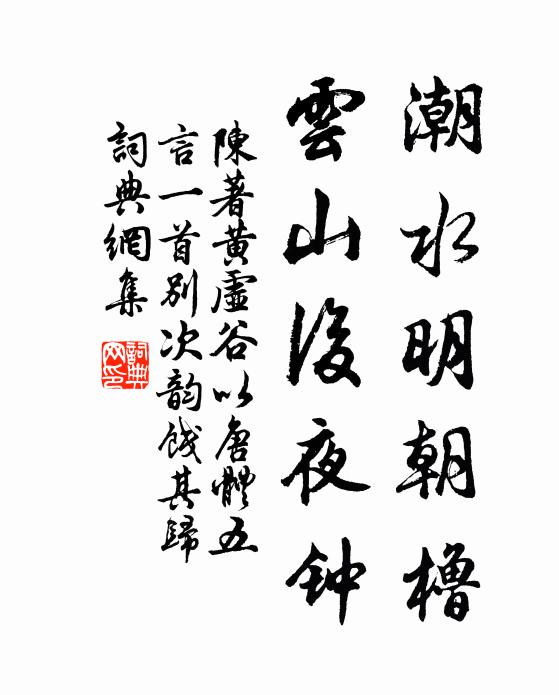 潮水明朝櫓
雲山後夜钟
陳著黄虛谷以唐體五
言一首别次韵餞其歸
詞典網集
詞典网印